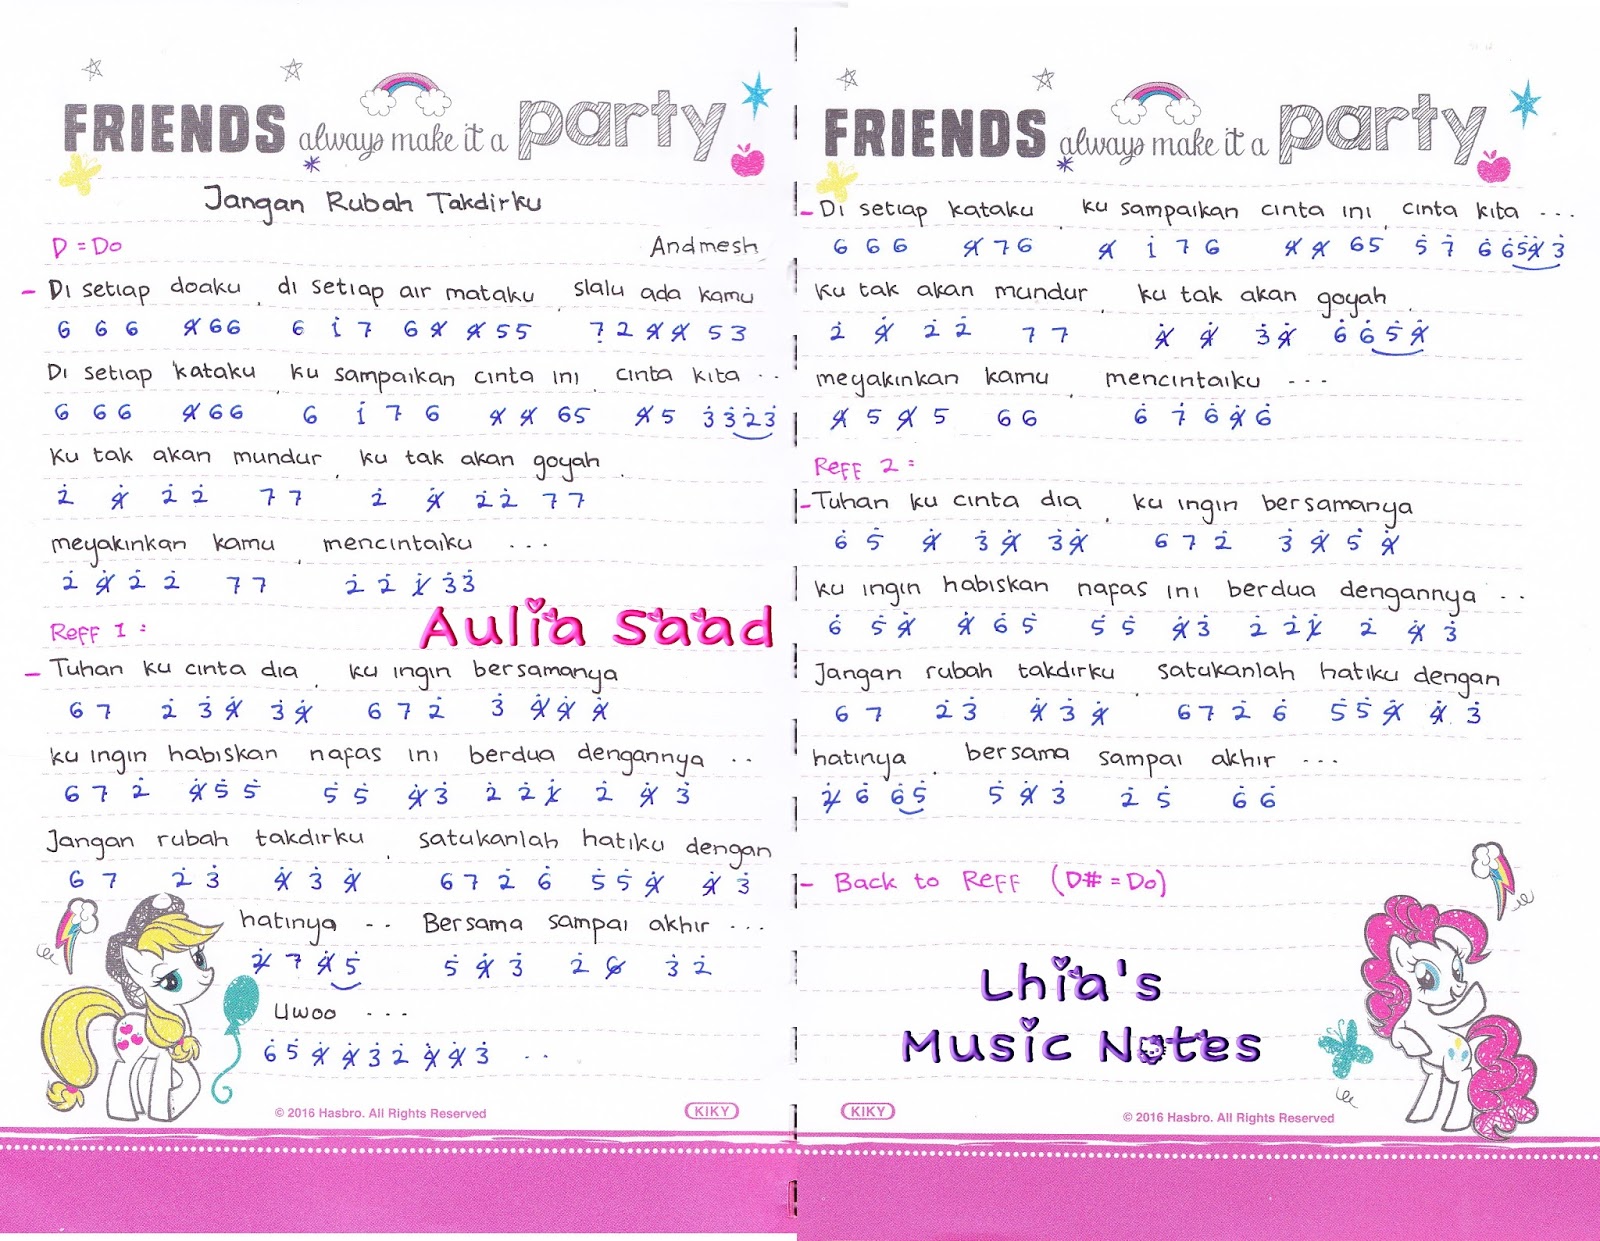 FRIENDS always make it a party
Jangan Rubah Takdirku
D = Do
Andmesh
- Di setiap doaku, di setiap air mataku, slalu ada kamu
6 6 6 4̸ 6 6 6 i̇ 7 6 4̸ 4̸ 5 5 7̣ 2 4̸ 4̸ 5 3
Di setiap kataku, ku sampaikan cinta ini, cinta kita ..
6 6 6 4̸ 6 6 6 i̇ 7 6 4̸ 4̸ 6 5 4̸ 5 3̇ 3̇ 2̇ 3̇
Ku tak akan mundur, ku tak akan goyah,
2̇ 4̸̇ 2̇ 2̇ 7 7 2̇ 4̸̇ 2̇ 2̇ 7 7
meyakinkan kamu, mencintaiku ...
2̇ 4̸̇ 2̇ 2̇ 7 7 2̇ 2̇ 1̸̇ 3̇ 3̇
Aulia Saad
Reff 1 :
- Tuhan ku cinta dia, ku ingin bersamanya
6 7 2̇ 3̇ 4̸̇ 3̇ 4̸̇ 6 7 2̇ 3̇ 4̸̇ 4̸̇ 4̸̇
ku ingin habiskan nafas ini berdua dengannya ..
6 7 2̇ 4̸̇ 5̇ 5̇ 5̇ 5̇ 4̸̇ 3̇ 2̇ 2̇ 1̸̇ 2̇ 4̸̇ 3̇
Jangan rubah takdirku, satukanlah hatiku dengan
6 7 2̇ 3̇ 4̸̇ 3̇ 4̸̇ 6 7 2̇ 6̇ 5̇ 5̇ 4̸̇ 4̸̇ 3̇
hatinya .. Bersama sampai akhir ...
2̸̇ 7̇ 4̸̇ 5̇ 5̇ 4̸̇ 3̇ 2̇ 6̸ 3̇ 2̇
Uwoo ...
6̇ 5̇ 4̸̇ 4̸̇ 3̇ 2̇ 4̸̇ 4̸̇ 3̇ ..
© 2016 Hasbro. All Rights Reserved
KIKY
FRIENDS always make it a party
- Di setiap kataku, ku sampaikan cinta ini, cinta kita ...
6 6 6 4̸ 7 6 4̸ i̇ 7 6 4̸ 4̸ 6 5 5̇ 7̇ 6̇ 6̇ 5̇ 4̸̇ 3̇
Ku tak akan mundur, ku tak akan goyah,
2̇ 4̸̇ 2̇ 2̇ 7 7 4̸̇ 4̸̇ 3̇ 4̸̇ 6̇ 6̇ 5̇ 4̸̇
meyakinkan kamu, mencintaiku ...
4̸̇ 5 4̸̇ 5 6 6 6̇ 7̇ 6̇ 4̸̇ 6̇
Reff 2 :
- Tuhan ku cinta dia, ku ingin bersamanya
6̇ 5̇ 4̸̇ 3̇ 4̸̇ 3̇ 4̸̇ 6 7 2̇ 3̇ 4̸̇ 5̇ 4̸̇
ku ingin habiskan nafas ini berdua dengannya ..
6̇ 5̇ 4̸̇ 4̸̇ 6̇ 5̇ 5̇ 5̇ 4̸̇ 3̇ 2̇ 2̇ 1̸̇ 2̇ 4̸̇ 3̇
Jangan rubah takdirku, satukanlah hatiku dengan
6 7 2̇ 3̇ 4̸̇ 3̇ 4̸̇ 6 7 2̇ 6̇ 5̇ 5̇ 4̸̇ 4̸̇ 3̇
hatinya, bersama sampai akhir ...
2̸̇ 6̇ 6̇ 5̇ 5̇ 4̸̇ 3̇ 2̇ 5̇ 6̇ 6̇
- Back to Reff (D# = Do)
Lhia's
Music Notes
KIKY
© 2016 Hasbro. All Rights Reserved